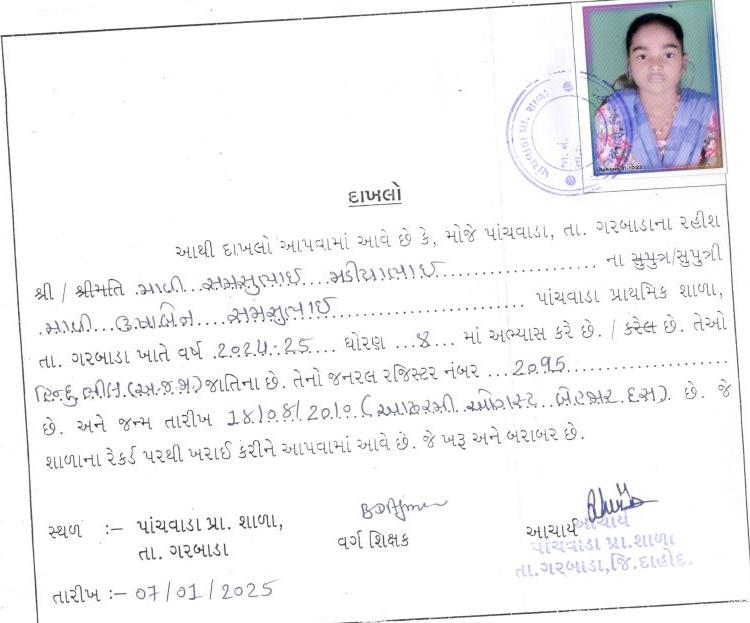 પાંચવાડા પ્રા. શાળા
જા. નં.
તા.
દાખલો
આથી દાખલો આપવામાં આવે છે કે, મોજે પાંચવાડા, તા. ગરબાડાના રહીશ
શ્રી / શ્રીમતિ ભાભી સમસુભાઈ મડીયાભાઈ ના સુપુત્ર/સુપુત્રી
ઉષાબેન સમસુભાઈ પાંચવાડા પ્રાથમિક શાળા,
તા. ગરબાડા ખાતે વર્ષ 2024-25 ધોરણ 8 માં અભ્યાસ કરે છે. / કરેલ છે. તેઓ
હિન્દુ ભીલ (અ.જ.જા) જાતિના છે. તેનો જનરલ રજિસ્ટર નંબર 2095
છે. અને જન્મ તારીખ 18/08/2010 (અઢારમી ઓગસ્ટ બેહજાર દસ) છે. જે
શાળાના રેકર્ડ પરથી ખરાઈ કરીને આપવામાં આવે છે. જે ખરૂ અને બરાબર છે.
સ્થળ :– પાંચવાડા પ્રા. શાળા,
તા. ગરબાડા
વર્ગ શિક્ષક
આચાર્ય
આચાર્ય
પાંચવાડા પ્રા.શાળા
તા.ગરબાડા,જિ.દાહોદ.
તારીખ :– 07/01/2025